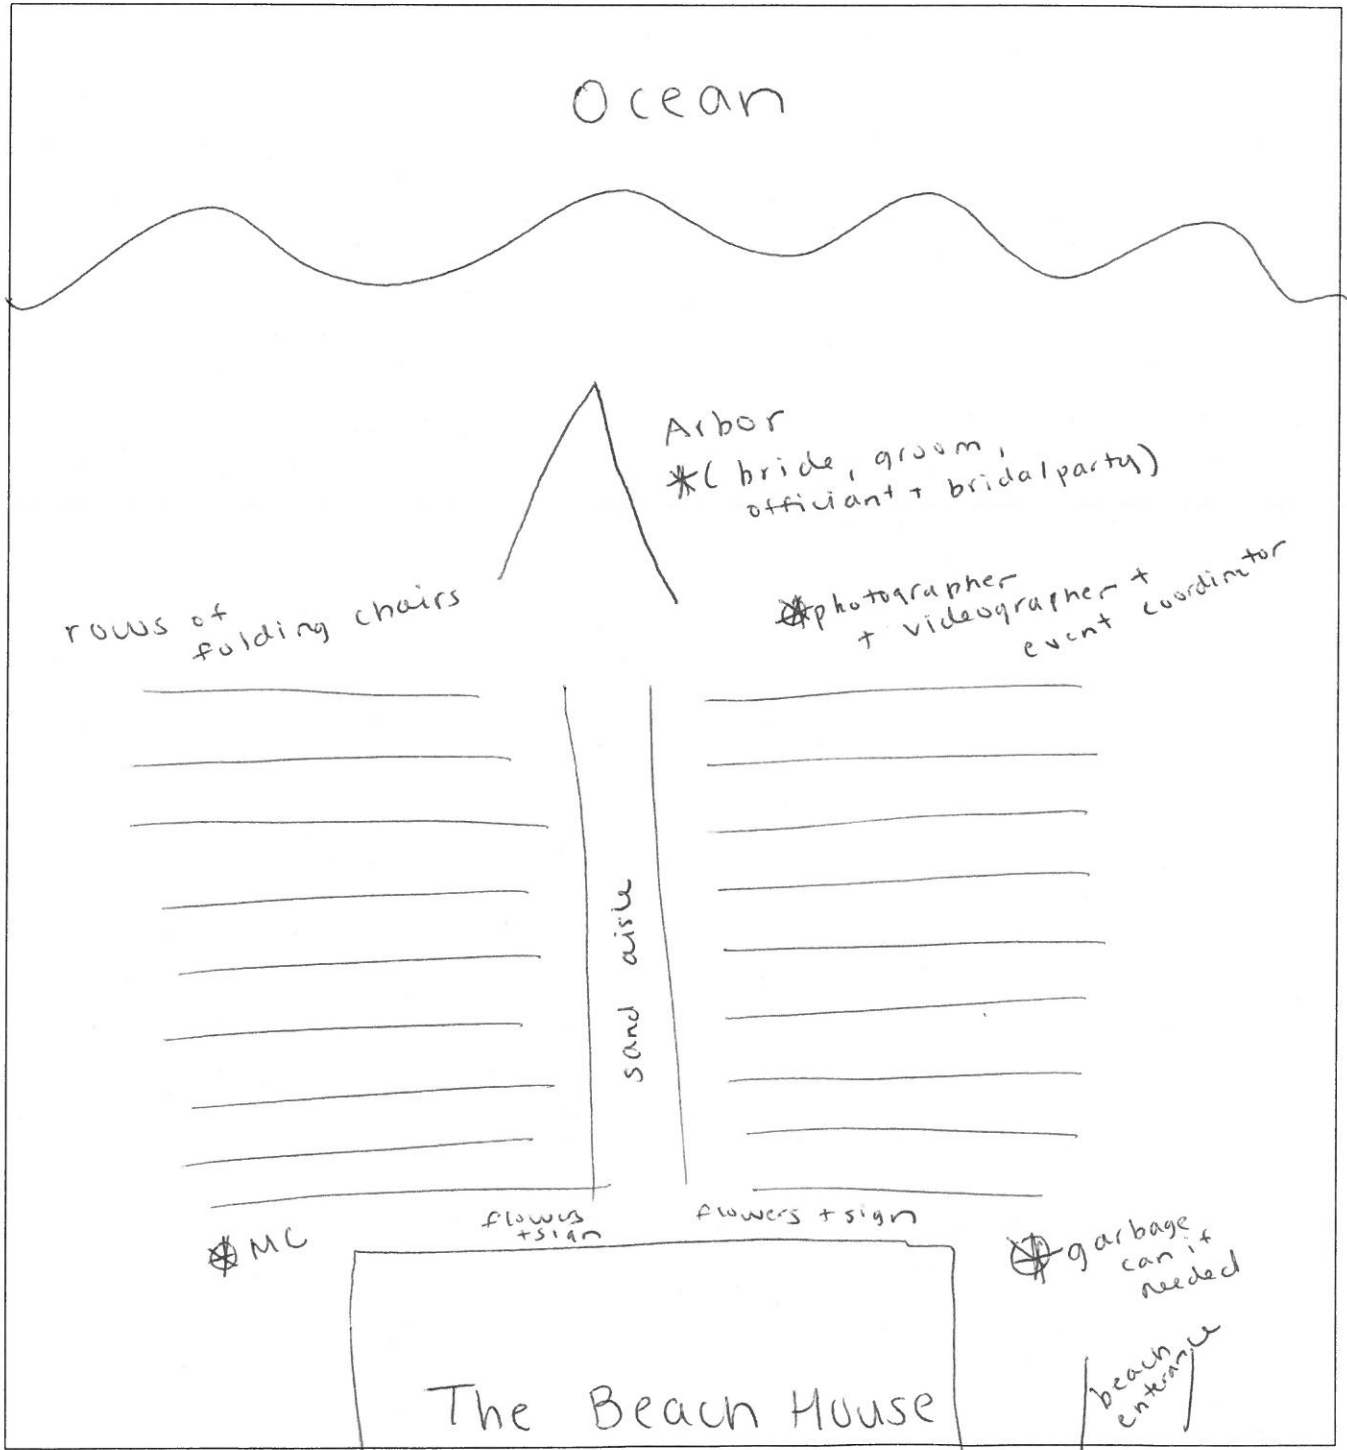 Ocean
Arbor
*(bride, groom,
officiant + bridal party)
rows of
folding chairs
*photographer
+ videographer +
event coordinator
sand aisle
flowers
+sign
flowers + sign
*MC
*garbage
can if
needed
The Beach House
beach
enterance